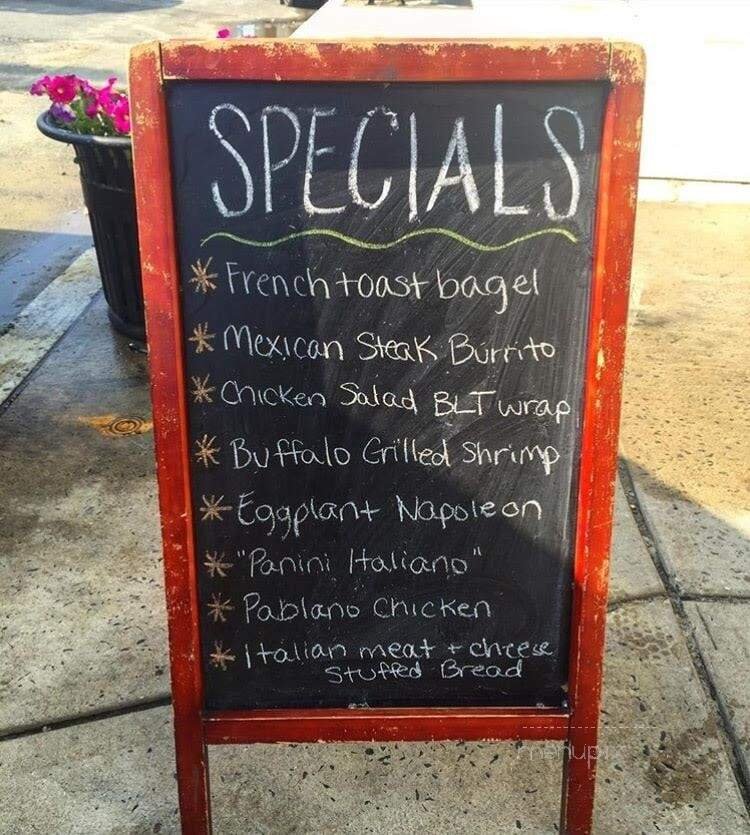 SPECIALS
* French toast bagel
* Mexican Steak Burrito
* Chicken Salad BLT wrap
* Buffalo Grilled Shrimp
* Eggplant Napoleon
* "Panini Italiano"
* Pablano Chicken
* Italian meat + cheese
Stuffed Bread
menupix